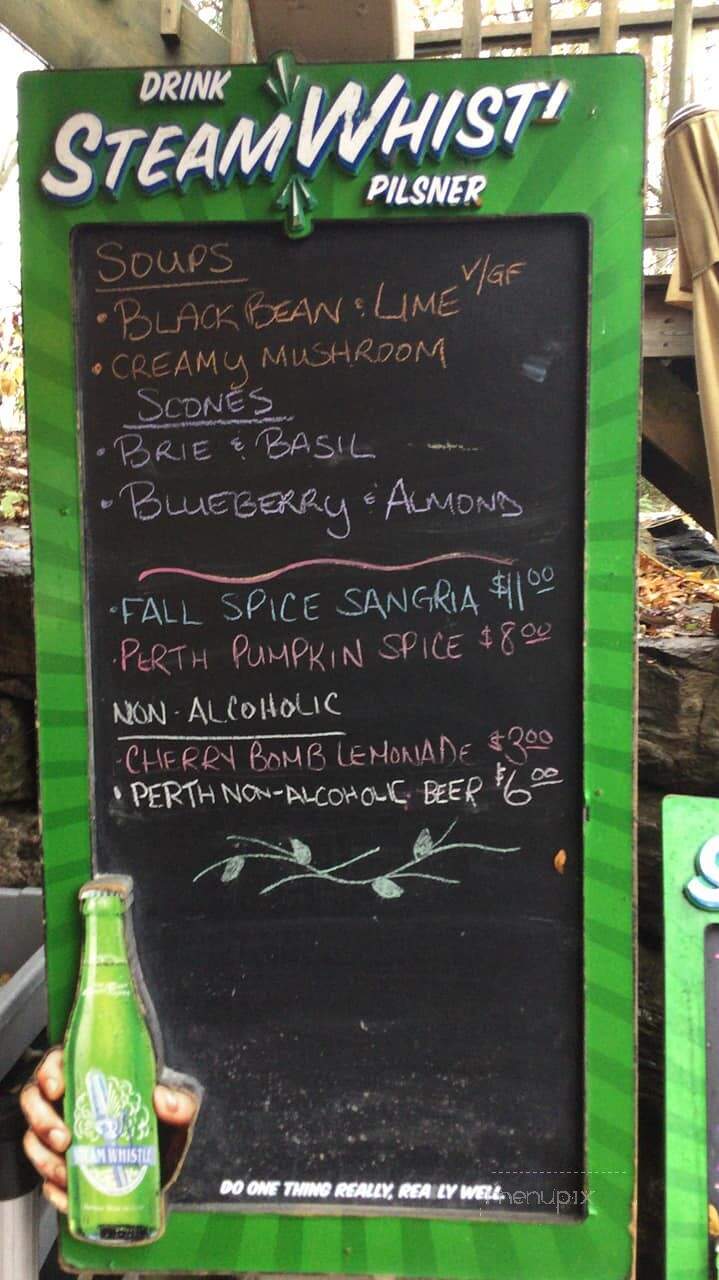 DRINK
STEAM WHIST!
PILSNER
SOUPS
• BLACK BEAN & LIME V/GF
• CREAMY MUSHROOM
SCONES
• BRIE & BASIL
• BLUEBERRY & ALMOND
• FALL SPICE SANGRIA $11.00
• PERTH PUMPKIN SPICE $8.00
NON-ALCOHOLIC
• CHERRY BOMB LEMONADE $3.00
• PERTH NON-ALCOHOLIC BEER $6.00
STEAM WHISTLE
DO ONE THING REALLY, REA LY WELL
menupix